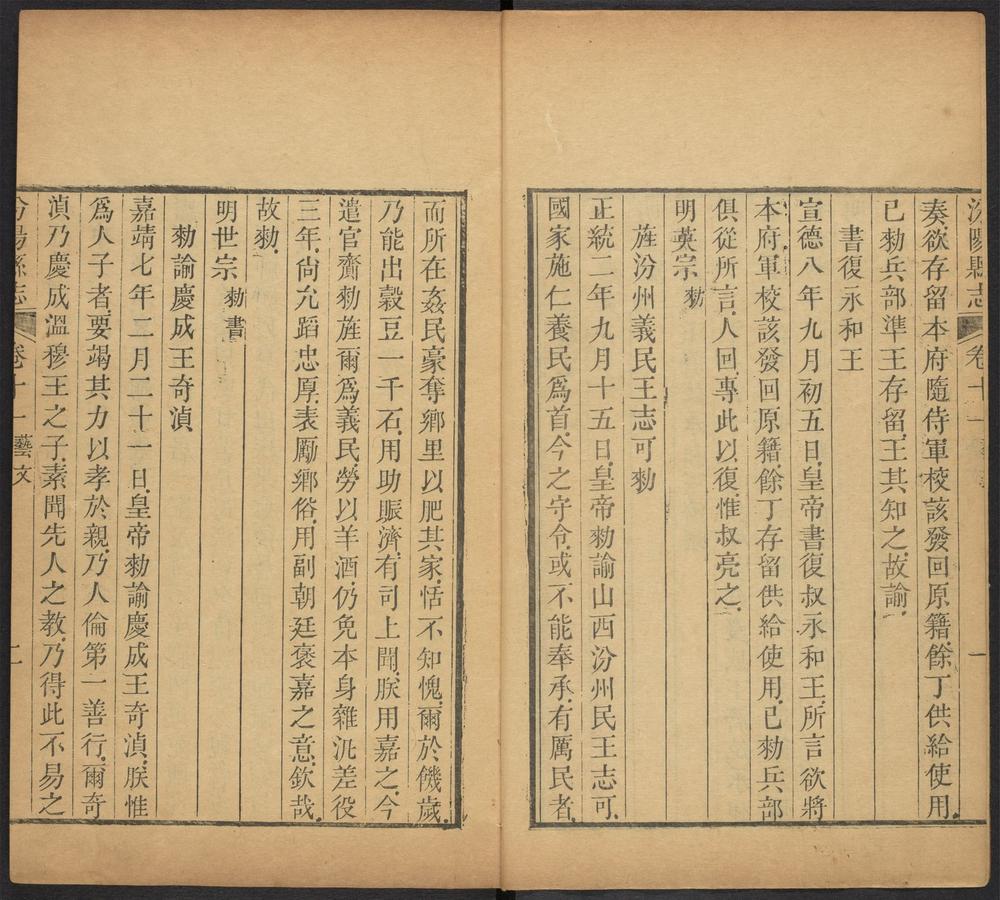 汾陽縣志 卷十一 一
奏欲存留本府隨侍軍校該發回原籍餘丁供給使用
已勑兵部準王存留王其知之故諭
書復永和王
宣德八年九月初五日皇帝書復叔永和王所言欲將
本府軍校該發回原籍餘丁存留供給使用已勑兵部
俱從所言人回專此以復惟叔亮之
明英宗 勑
旌汾州義民王志可勑
正統二年九月十五日皇帝勑諭山西汾州民王志可
國家施仁養民爲首今之守令或不能奉承有厲民者
而所在姦民豪奪鄉里以肥其家恬不知愧爾於饑歲
乃能出穀豆一千石用助賑濟有司上聞朕用嘉之今
遣官齎勑旌爾爲義民勞以羊酒仍免本身雜汎差役
三年尙允蹈忠厚表勵鄉俗用副朝廷褒嘉之意欽哉
故勑
明世宗 勑書
勑諭慶成王奇湞
嘉靖七年二月二十一日皇帝勑諭慶成王奇湞朕惟
爲人子者要竭其力以孝於親乃人倫第一善行爾奇
湞乃慶成溫穆王之子素聞先人之教乃得此不易之
汾陽縣志 卷十一 藝文 二